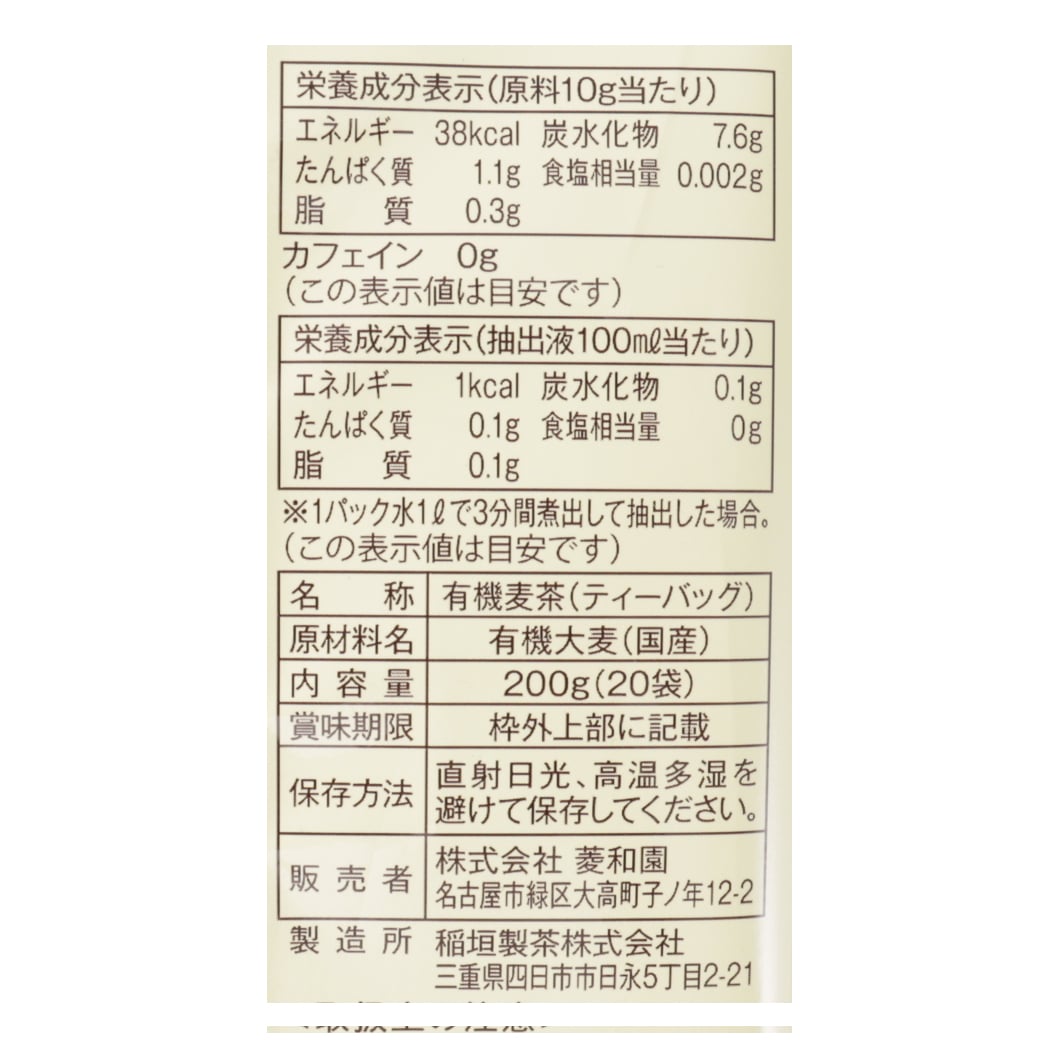 栄養成分表示(原料10g当たり)
エネルギー 38kcal 炭水化物 7.6g
たんぱく質 1.1g 食塩相当量 0.002g
脂質 0.3g
カフェイン 0g
(この表示値は目安です)
栄養成分表示(抽出液100㎖当たり)
エネルギー 1kcal 炭水化物 0.1g
たんぱく質 0.1g 食塩相当量 0g
脂質 0.1g
※1パック水1ℓで3分間煮出して抽出した場合。
(この表示値は目安です)
名称 有機麦茶(ティーバッグ)
原材料名 有機大麦(国産)
内容量 200g(20袋)
賞味期限 枠外上部に記載
保存方法 直射日光、高温多湿を
避けて保存してください。
販売者 株式会社 菱和園
名古屋市緑区大高町子ノ年12-2
製造所 稲垣製茶株式会社
三重県四日市市日永5丁目2-21